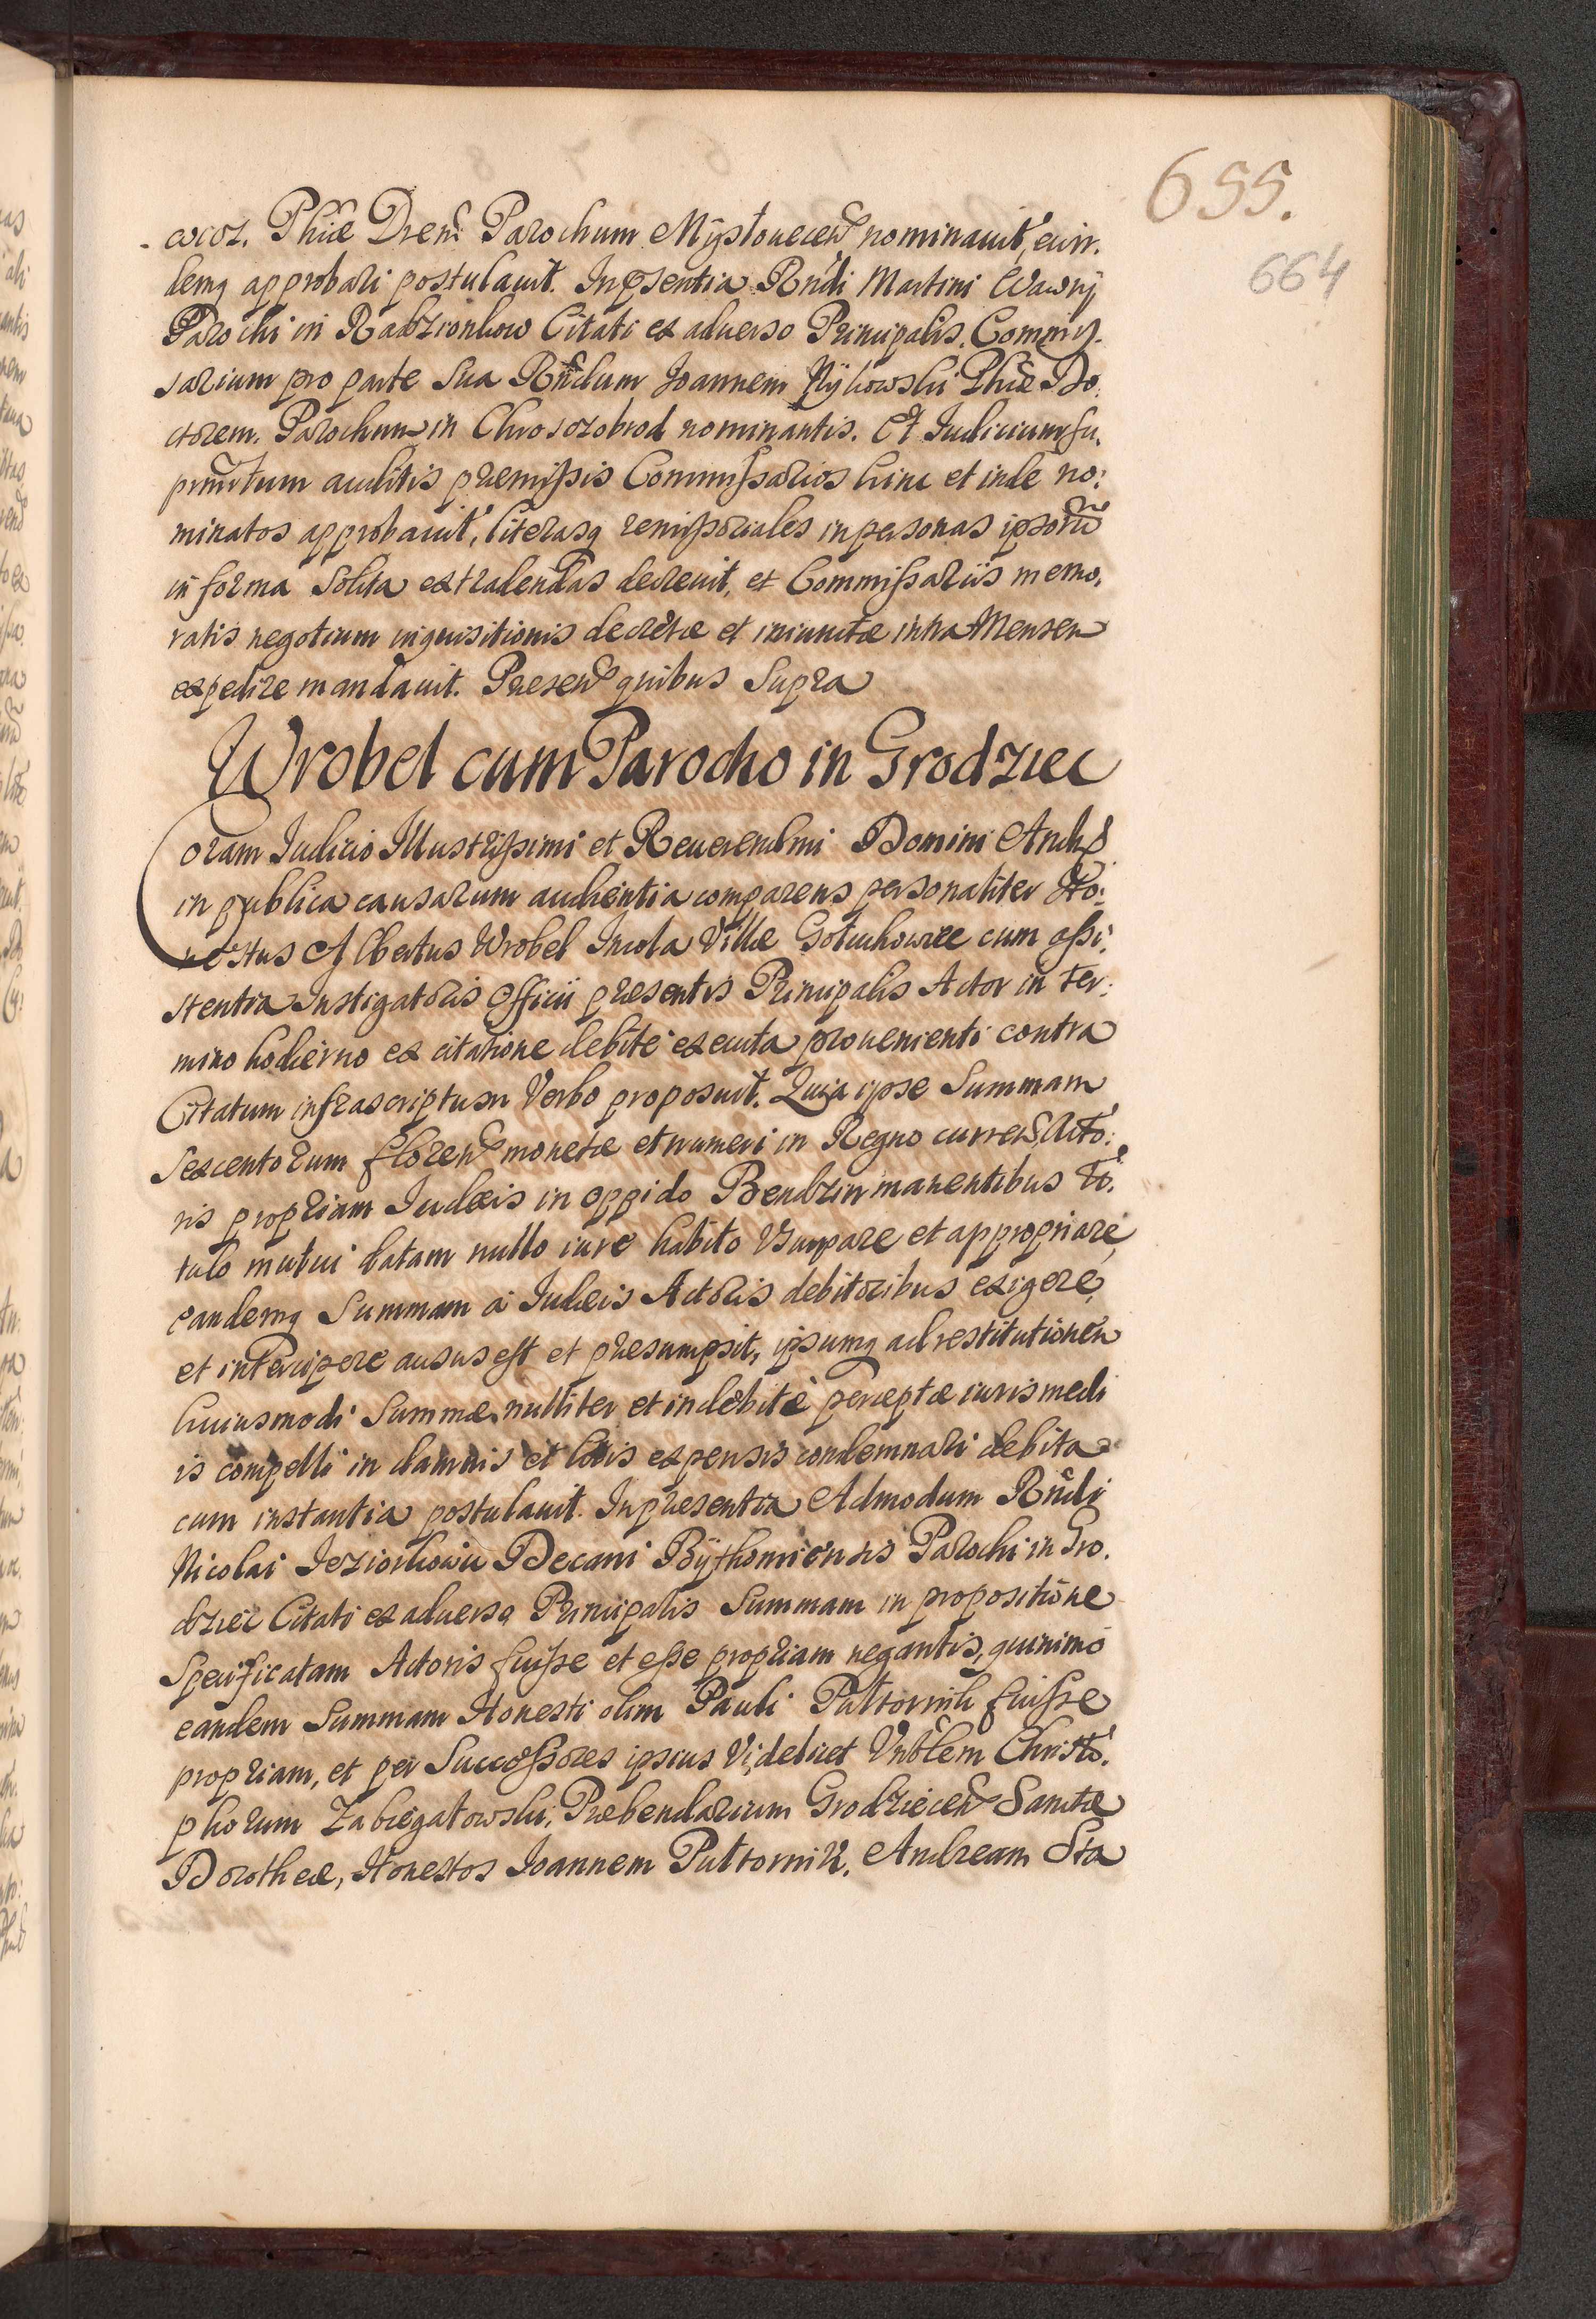 655.
664
cocor. Phiæ Drem Parochum Mÿslouecen nominauit, eun¬
demq approbari postulauit. In pñsentia Rñdi Martini Wawrÿ
Parochi in Radzionkow Citati ex aduerso Principalis, Commis¬
sarium pro parte sua Rñdum Joannem Rÿkowski Phiæ Do¬
ctorem, Parochum in Chrosozobrod nominantis. Et Iudicium su¬
prañtum auditis præmissis Commissarios hinc et inde no¬
minatos approbauit, literasq remissoriales in personas ipsorũ
in forma solita extradendas decreuit, et Commissariis memo¬
ratis negotium inquisitionis decretæ et iniunctæ intra Mensem
expedire mandauit. Presen quibus Supra
Wrobel cum Parocho in Grodziec
Coram Iudicio Illustrissimi et Reuerendmi Domini Andreæ
in publica causarum audientia comparens personaliter Ho¬
nestus Albertus Wrobel Incola Villæ Goluchowice cum assi¬
stentia Instigatoris Officii præsentis Principalis Actor in ter¬
mino hodierno ex citatione debite executa prouenienti contra
Citatum infrascriptum Verbo proposuit. Quia ipse Summam
sexcentorum floren monetæ et numeri in Regno curren Acto¬
ris propriam Iudæis in oppido Bendzin manentibus ti¬
tulo mutui datam nullo iure habito Vsurpare et appropriare,
eandemq Summam a Iudæis Actoris debitoribus exigere,
et intercipere ausus est et præsumpsit, ipsumq ad restitutionem
huiusmodi Summæ nulliter et indebitè perceptæ iuris medi
is compelli in damnis et litis expensis condemnari debita
cum instantia postulauit. In præsentia Admodum Rñdi
Nicolai Jeziorkowic Decani Bÿthomiensis Parochi in Gro¬
dziec Citati ex aduerso Principalis Summam in propositione
specificatam Actoris fuisse et esse propriam negantis, quinimo
eandem Summam Honesti olim Pauli Pultornik fuisse
propriam, et per Successores ipsius Videlicet Vnblem Christo¬
phorum Zabiegatowski, Præbendarium Grodziecen Sanctæ
Dorotheæ, Honestos Joannem Pultornik, Andream Sta